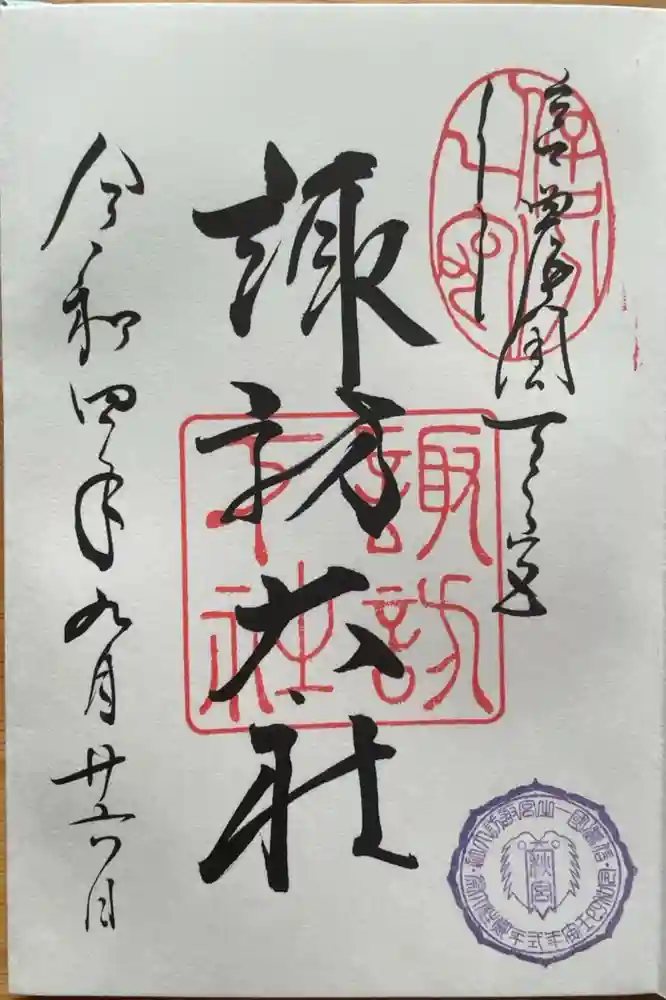 信濃國一之宮
諏訪大社
令和四年九月廿六日
諏訪
下社
信濃國一之宮諏訪大社
令和四壬寅年式年御柱大祭
秋宮